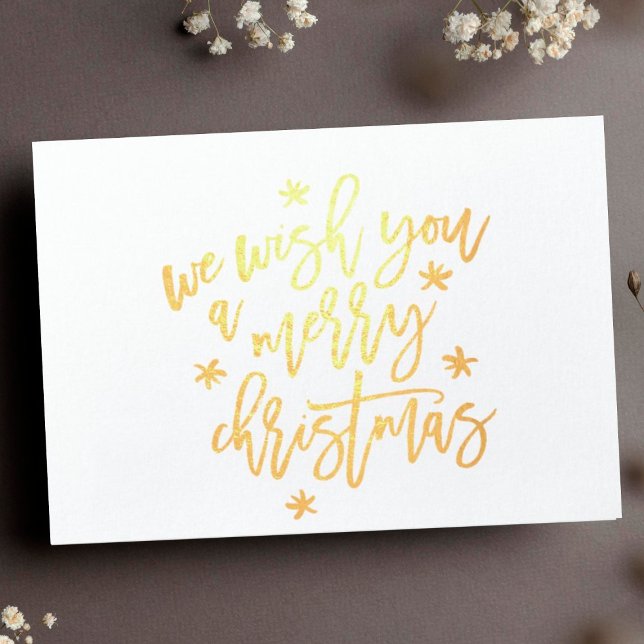 we wish you
a merry
christmas